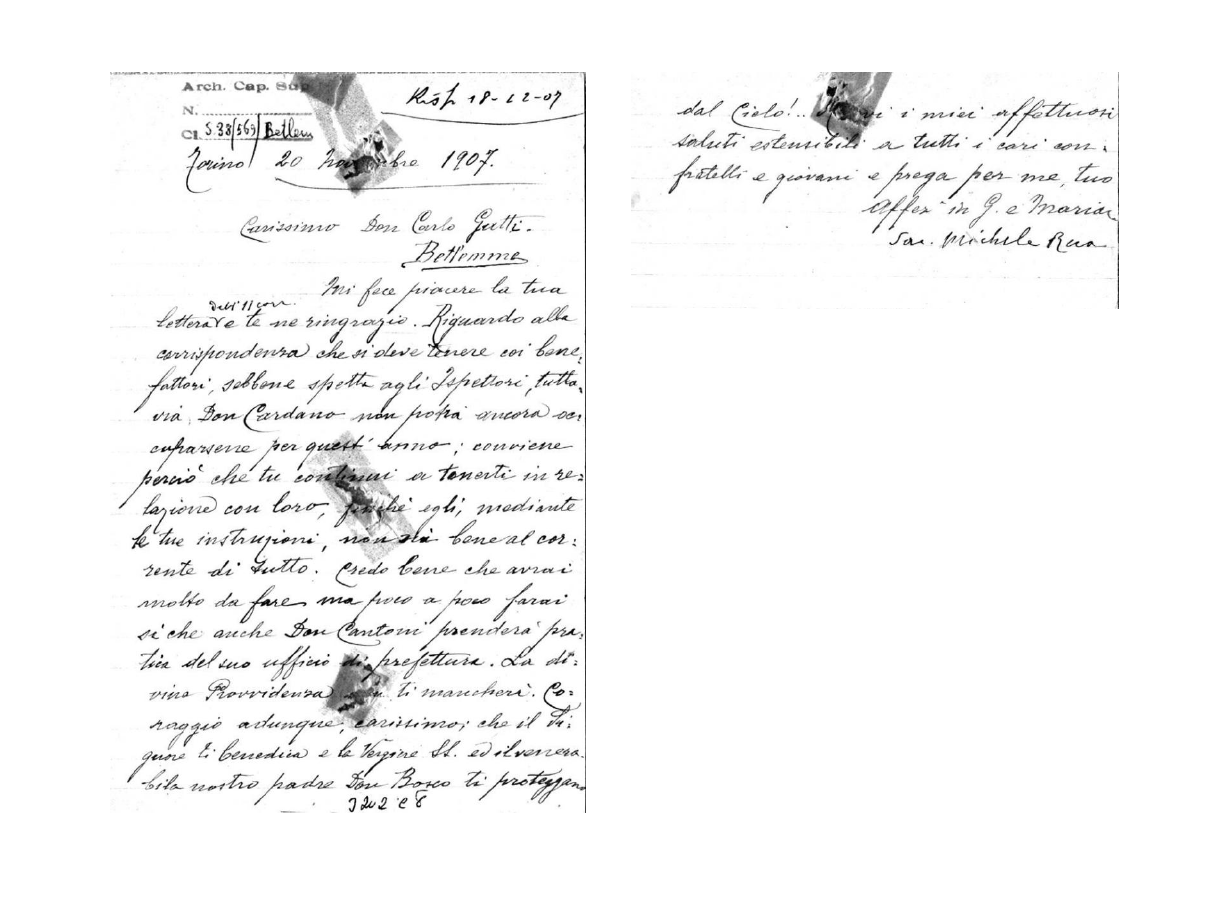 Arch. Cap. Sup
Risp 18-12-07
N.
Cl. S.38/569/Betlem
Torino 20 Novembre 1907.
Carissimo Don Carlo Gatti.
Betlemme
Mi fece piacere la tua
dell'11 corr.
lettera e te ne ringrazio. Riguardo alla
corrispondenza che si deve tenere coi bene=
fattori, sebbene spetta agli Ispettori, tutta=
via, Don Cardano non potrà ancora oc=
cuparsene per quest'anno; conviene
perciò che tu continui a tenerti in re=
lazione con loro, finchè egli, mediante
le tue instruzioni, non sia bene al cor=
rente di tutto. Credo bene che avrai
molto da fare ma poco a poco farai
sì che anche Don Cantoni prenderà pra=
tica del suo ufficio di prefettura. La di=
vina Provvidenza non ti mancherà. Co=
raggio adunque, carissimo; che il Si=
gnore ti benedica e la Vergine SS. ed il venera
bile nostro padre Don Bosco ti proteggano
3202 C 8
dal Cielo!.. i miei affettuosi
saluti estensibili a tutti i cari con=
fratelli e giovani e prega per me, tuo
Affez in G. e Maria
Sac. Michele Rua